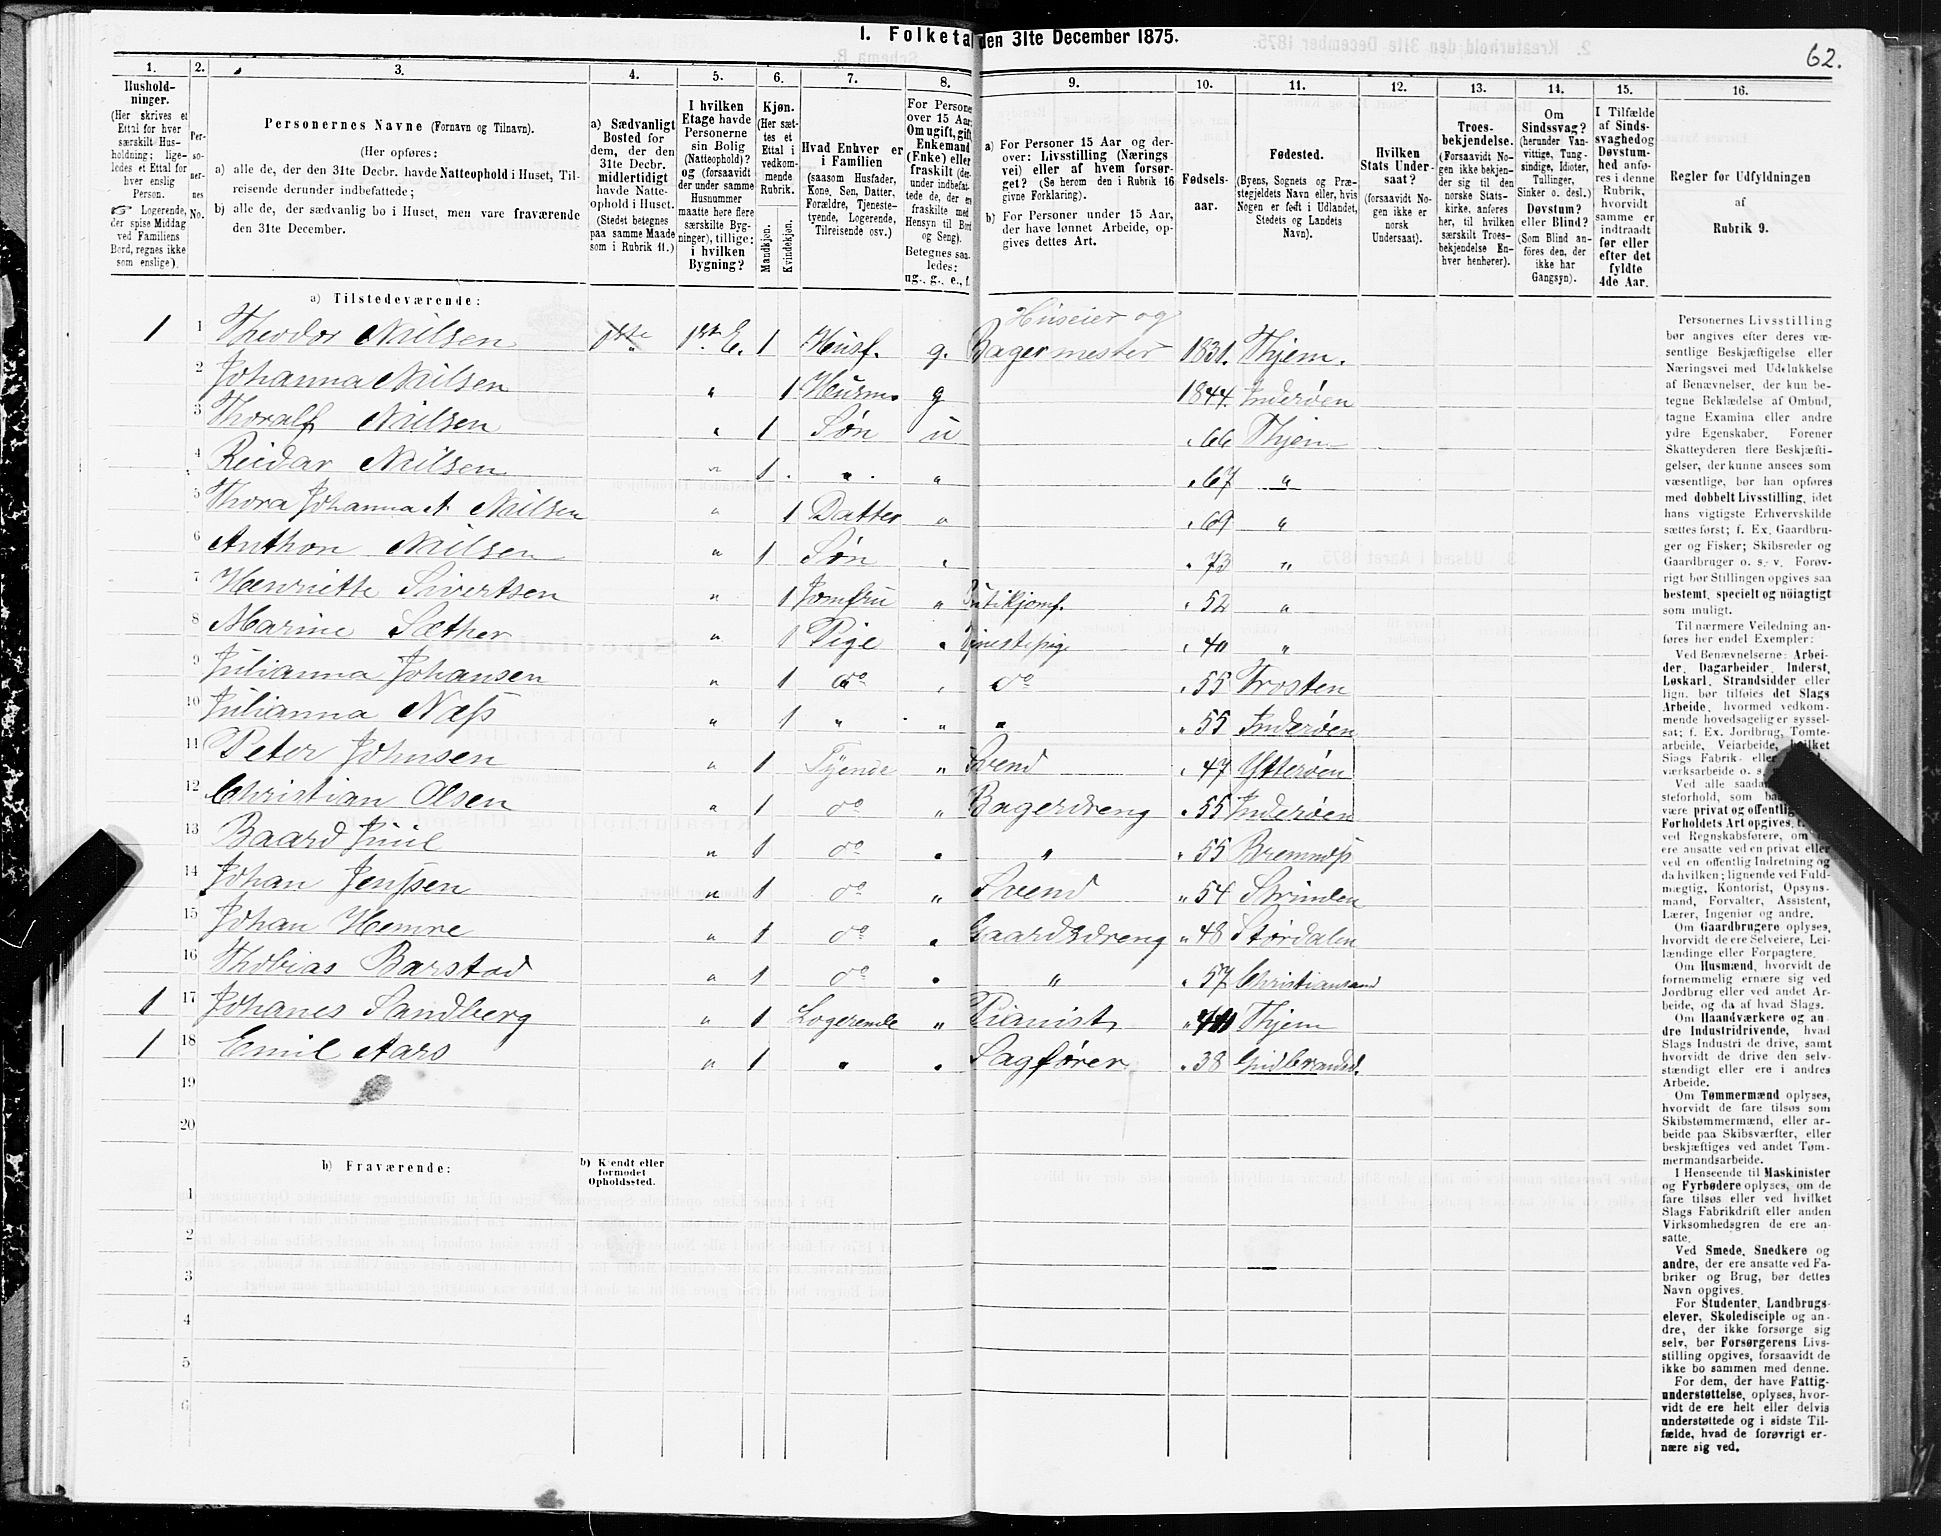 1. Folketal den 31te December 1875.
62.
1. 2. 3. 4. 5. 6. 7. 8. 9. 10. 11. 12. 13. 14. 15. 16.
Hushold-
ninger.
(Her skrives et
Ettal for hver
særskilt Hus-
holdning; lige-
ledes et Ettal for
hver enslig
Person.
Logerende,
der spise Middag
ved Familiens
Bord, regnes ikke
som enslige).
Per-
so-
ner-
nes
No.
Personernes Navne (Fornavn og Tilnavn).
(Her opføres:
a) alle de, der den 31te Decbr. havde Natteophold i Huset, Til-
reisende derunder indbefattede;
b) alle de, der sædvanlig bo i Huset, men vare fraværende
den 31te December.
a) Sædvanligt
Bosted for
dem, der den
31te Decbr.
midlertidigt
havde Natte-
ophold i Huset.
(Stedet betegnes
paa samme Maade
som i Rubrik 11.)
I hvilken
Etage havde
Personerne
sin Bolig
(Natteophold)?
og (forsaavidt
der under samme
Husnummer
maatte høre flere
særskilte Byg-
ninger), tillige:
i hvilken
Bygning?
Kjøn.
(Her sæt-
tes et
Ettal i
vedkom-
mende
Rubrik.
Mandkjøn.
Kvindekjøn.
Hvad Enhver er
i Familien
(saasom Husfader,
Kone, Søn, Datter,
Forældre, Tjeneste-
tyende, Logerende,
Tilreisende osv.)
For Persone
over 15 Aar:
Om ugift, gift,
Enkemand
(Enke) eller
fraskilt (der-
under indbefat-
tede de, der ere
fraskilte med
Hensyn til Bord
og Seng).
Betegnes saa-
ledes:
ug., g., e., f.
a) For Personer 15 Aar og der-
over: Livsstilling (Nærings
vei) eller af hvem forsør-
get? (Se herom den i Rubrik 16
givne Forklaring).
b) For Personer under 15 Aar,
der have lønnet Arbeide, op-
gives dettes Art.
Fødsels-
aar.
Fødested.
(Byens, Sognets og Præ-
stegjeldets Navn eller, hvis
Nogen er født i Udlandet,
Stedets og Landets
Navn).
Hvilken
Stats Under-
saat?
(forsaavidt No-
gen ikke er
norsk
Undersaat).
Troes-
bekjendelse.
(Forsaavidt No-
gen ikke bekjen-
der sig til den
norske Stats-
kirke, anføres
her, til hvilken
særskilt Troes-
bekjendelse En-
hver henhører).
Om
Sindssvag?
(herunder Van-
vittige, Tung-
sindige, Idioter,
Tullinger,
Sinker o. desl.)
Døvstum?
eller Blind?
(Som Blind an-
føres den, der
ikke har
Gangsyn).
I Tilfælde
af Sinds-
svaghed og
Døvstum-
hed anfø-
res i denne
Rubrik,
hvorvidt
samme er
indtraadt
før eller
efter det
fyldte
4de Aar.
Regler for Udfyldningen
af
Rubrik 9.
a) Tilstedeværende:
Huseier og
1 1 Theodor Nilsen 1ste 1ste E. 1 Husf. g. Bagermester 1831. Thjem.
2 Johanna Nilsen " 1 Husm. g 1844. Inderøen
3 Thoralf Nilsen " 1 Søn u " 66 Thjem
4 Reidar Nilsen " 1 " " " 67 "
5 Thora Johanna A Nilsen " 1 Datter " " 69 "
6 Anthon Nilsen " 1 Søn " " 73 "
7 Henriette Sivertsen " 1 Jomfru " Butikjomf. " 52 "
8 Marine Sæther " 1 Pige " Tjenestepige " 40 "
9 Julianna Johansen " 1 do " do " 55 Frosten
10 Julianna Næss " 1 " " " " 55 Inderøen
11 Peter Johnsen " 1 Tyende " Svend " 47 Ytterøen
12 Christian Olsen " 1 do " Bagerdreng " 55 Inderøen
13 Baard Juul " 1 do " " " 55 Bremnæss
14 Johan Jenssen " 1 do " Svend " 54 Strinden
15 Johan Hemre " 1 do " Gaardsdreng " 48 Størdalen
16 Thobias Barstad " 1 do " " " 57 Christiansund
1 17 Johanes Sandberg " 1 Logerende " Pianist " Thjem
1 18 Emil Aars " 1 " " Sagfører " 38 Gudbrandsd.
19
20
b) Fraværende:
b) Kjendt eller
formodet
Opholdssted.
1
2
3
4
5
6
Personernes Livsstilling
bør angives efter deres væ-
sentlige Beskjæftigelse eller
Næringsvei med Udelukkelse
af Benævnelser, der kun be-
tegne Beklædelse af Ombud,
tagne Examina eller andre
ydre Egenskaber. Forener
Skatteyderen flere Beskjæfti-
gelser, der kunne ansees som
væsentlige, bør han opføres
med dobbelt Livsstilling, idet
hans vigtigste Erhvervskilde
sættes først; f. Ex. Gaardbru-
ger og Fisker; Skibsreder og
Gaardbruger o. s. v. Forøv-
rigt bør Stillingen opgives saa
bestemt, specielt og nøiagtigt
som muligt.
Til nærmere Veiledning an-
føres her endel Exempler:
Ved Benævnelserne: Arbei-
der, Dagarbeider, Inderst,
Løskarl, Strandsidder eller
lign. bør tilføies det Slags
Arbeide, hvormed vedkom-
mende hovedsagelig er syssel-
sat; f. Ex. Jordbrug, Tomte-
arbeide, Veiarbeide, hvilket
Slags Fabrik- eller
værksarbeide o. s.
Ved alle saada
steforhold, som
være privat og offentlig
Forholdets Art opgives, t.
ved Regnskabsførere, om
ere ansatte ved en privat eller
ved en offentlig Indretning og
da hvilken; lignende ved Fuld-
mægtig, Kontorist, Opsyns-
mand, Forvalter, Assistent,
Lærer, Ingeniør og andre.
Om Gaardbrugere oplyses,
hvorvidt de ere Selveiere, Lei-
lændinge eller Forpagtere.
Om Husmænd, hvorvidt de
fornemmelig ernære sig ved
Jordbrug eller ved andet Ar-
beide, og da af hvad Slags.
Om Haandværkere og an-
dre Industridrivende, hvad
Slags Industri de drive, samt
hvorvidt de drive den selv-
stændigt eller ere i andres
Arbeide.
Om Tømmermænd oplyses,
hvorvidt de fare tilsøs som
Skibstømmermænd, eller ar-
beide paa Skibsværfter, eller
beskjæftiges ved andet Tøm-
mermandsarbeide.
I Henseende til Maskinister
og Fyrbødere oplyses, om de
fare tilsøs eller ved hvilket
Slags Fabrikdrift eller anden
Virksomhedsgren de ere an-
satte.
Ved Smede, Snedkere og
andre, der ere ansatte ved Fa-
briker og Brug, bør dettes
Navn opgives.
For Studenter, Landbrugs-
elever, Skoledisciple og an-
dre, der ikke forsørge sig
selv, bør Forsørgerens Livs-
stilling opgives, forsaavidt de
ikke bo sammen med denne.
For dem, der have Fattig-
understøttelse, oplyses, hvor-
vidt de ere helt eller delvis
understøttede og i sidste Til-
fælde, hvad de forøvrigt er-
nære sig ved.